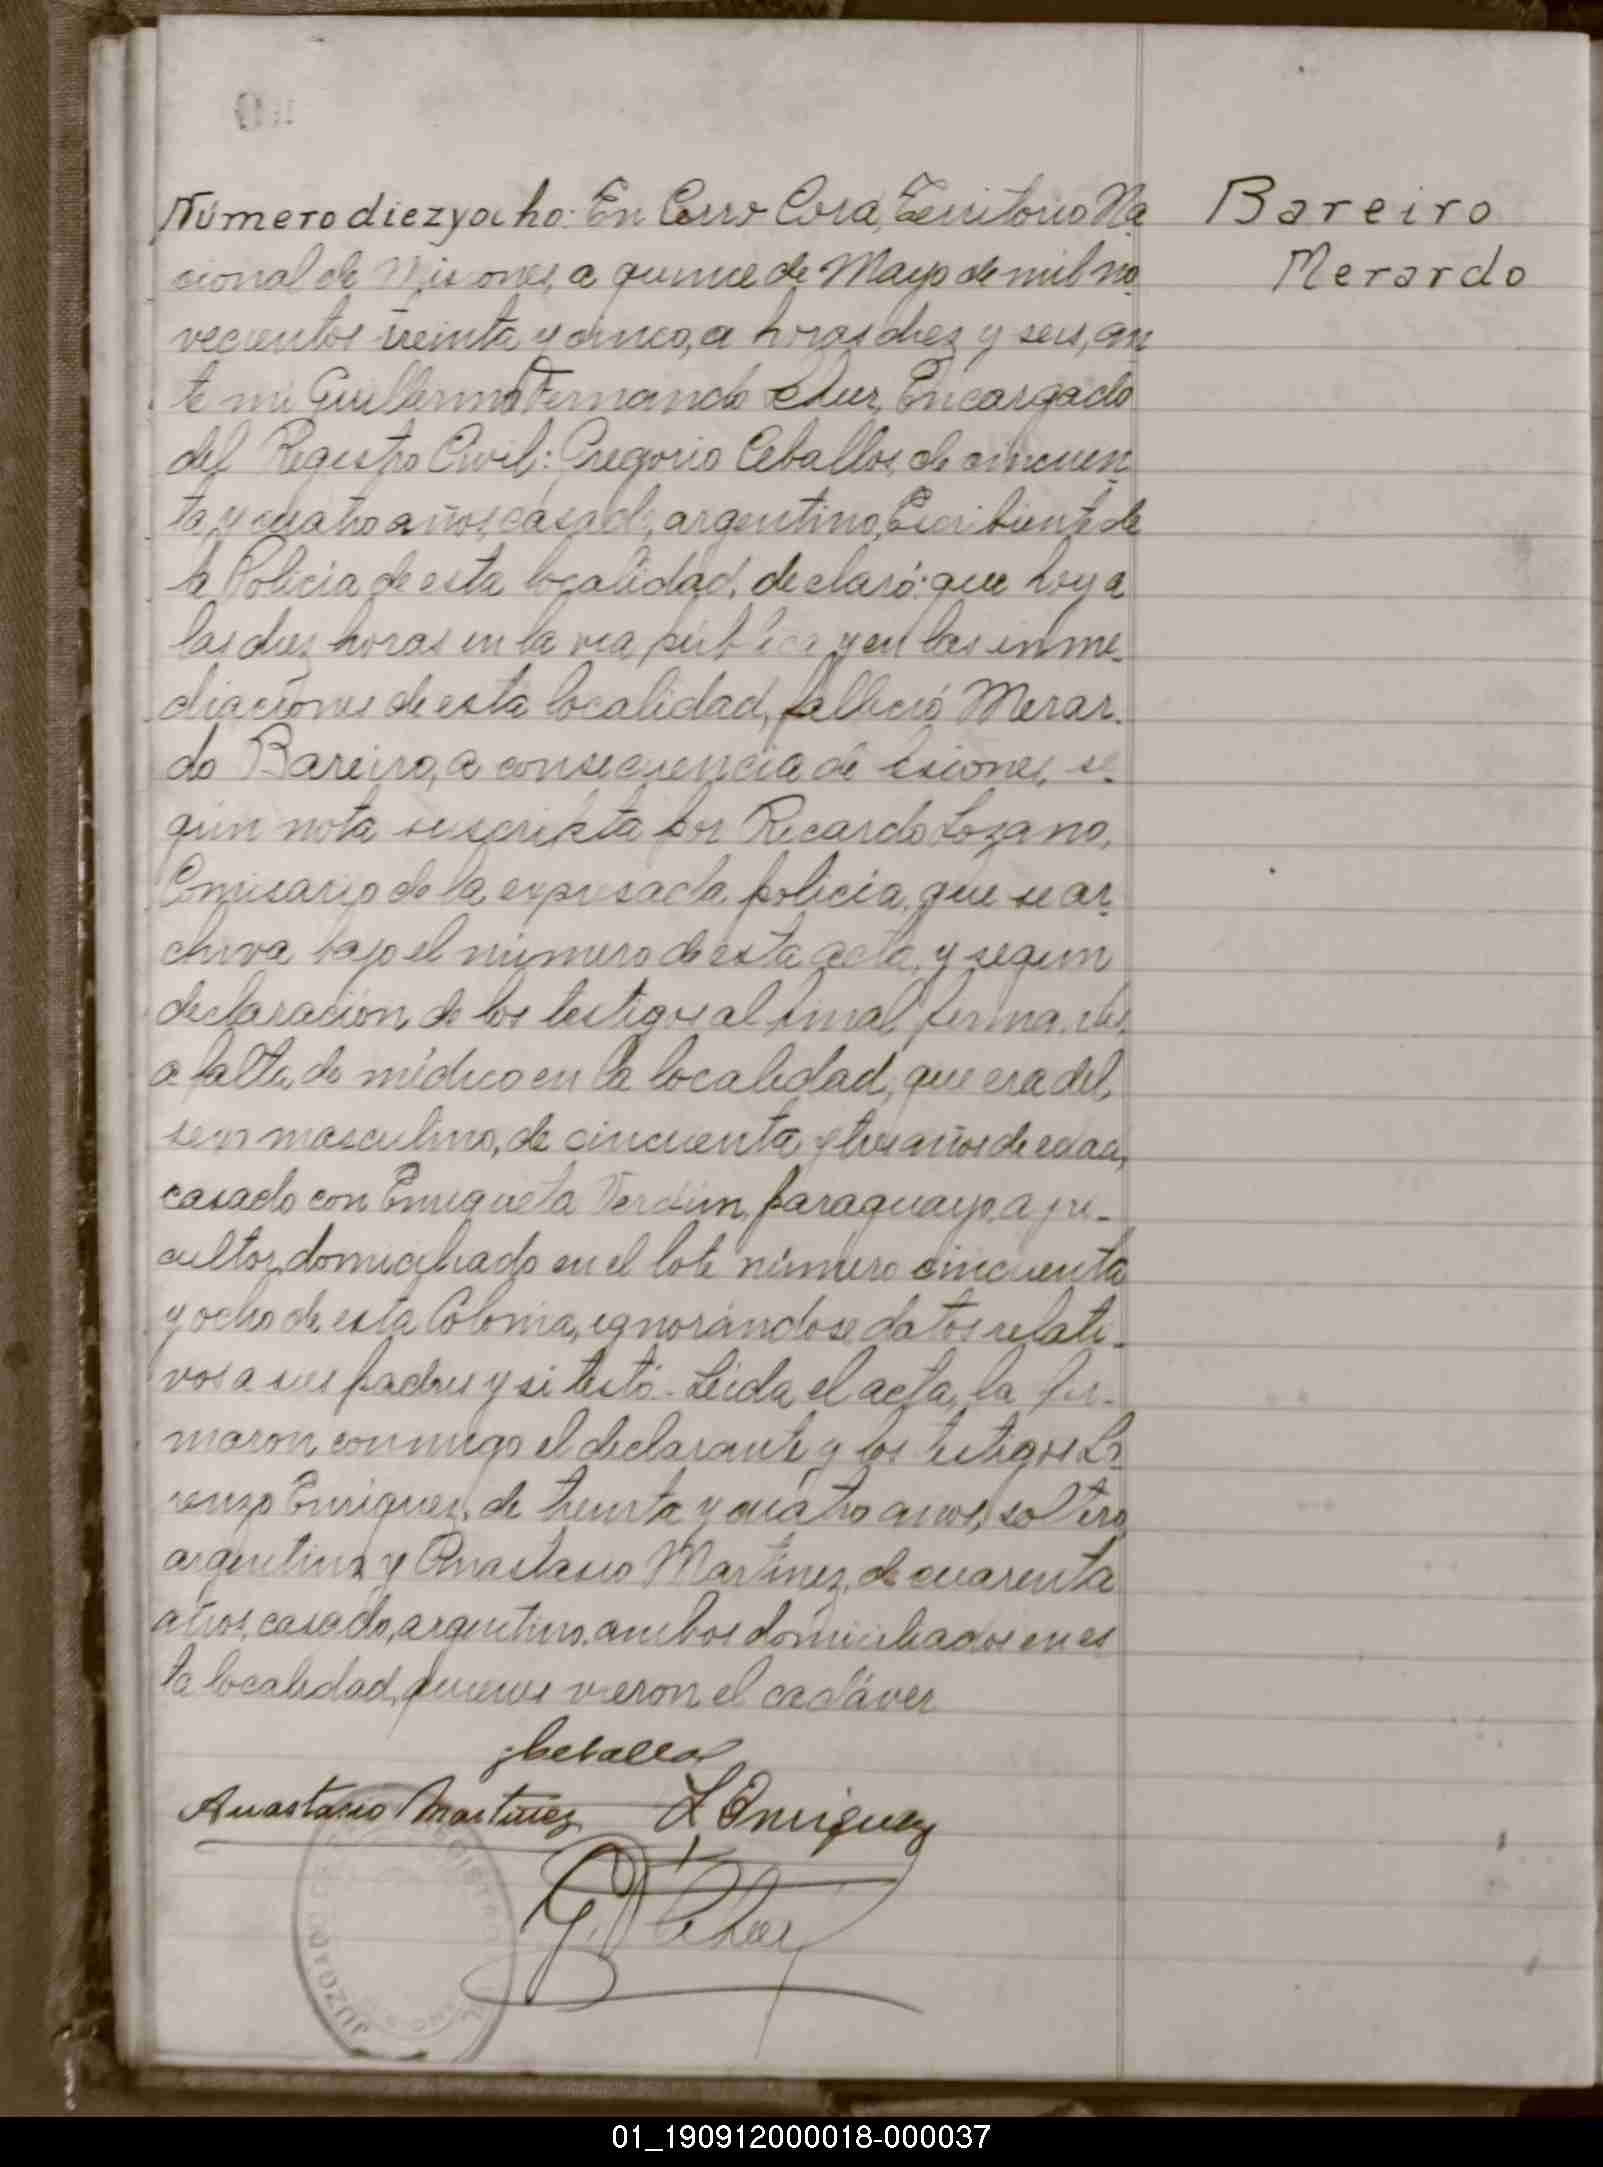 Número diez y ocho: En Cerro Corá, Territorio Na
Bareiro
cional de Misiones, a quince de Mayo de mil no
Merardo
vecientos treinta y cinco, a horas diez y seis, an
te mi Guillermo Fernando Encargado
del Registro Civil: Gregorio Ceballos, de cincuen
ta y cuatro años, casado, argentino, Escribiente de
la Policía de esta localidad, declaró: que hoy a
las diez horas en la via pública y en las inme-
diaciones de esta localidad, falleció Merar-
do Bareiro, a consecuencia de lesiones, se-
gún nota suscripta por Ricardo Lozano,
Comisario de la expresada policía, que se ar-
chiva bajo el número de esta acta, y según
declaración de los testigos al final firmantes,
a falta de médico en la localidad, que era del
sexo masculino, de cincuenta y tres años de edad,
casado con Enriqueta paraguayo, agri-
cultor, domiciliado en el lote número cincuenta
y ocho de esta Colonia, ignorándose datos relati-
vos a sus padres y si testó.- Leida el acta, la fir-
maron conmigo el declarante y los testigos Lo-
renzo Enriquez, de treinta y cuatro años, soltero,
argentino y Anastasio Martinez, de cuarenta
años, casado, argentino, ambos domiciliados en es
ta localidad, quienes vieron el cadáver
Ceballos
Anastacio Martinez L Enriquez
JUZGADO
01_190912000018-000037